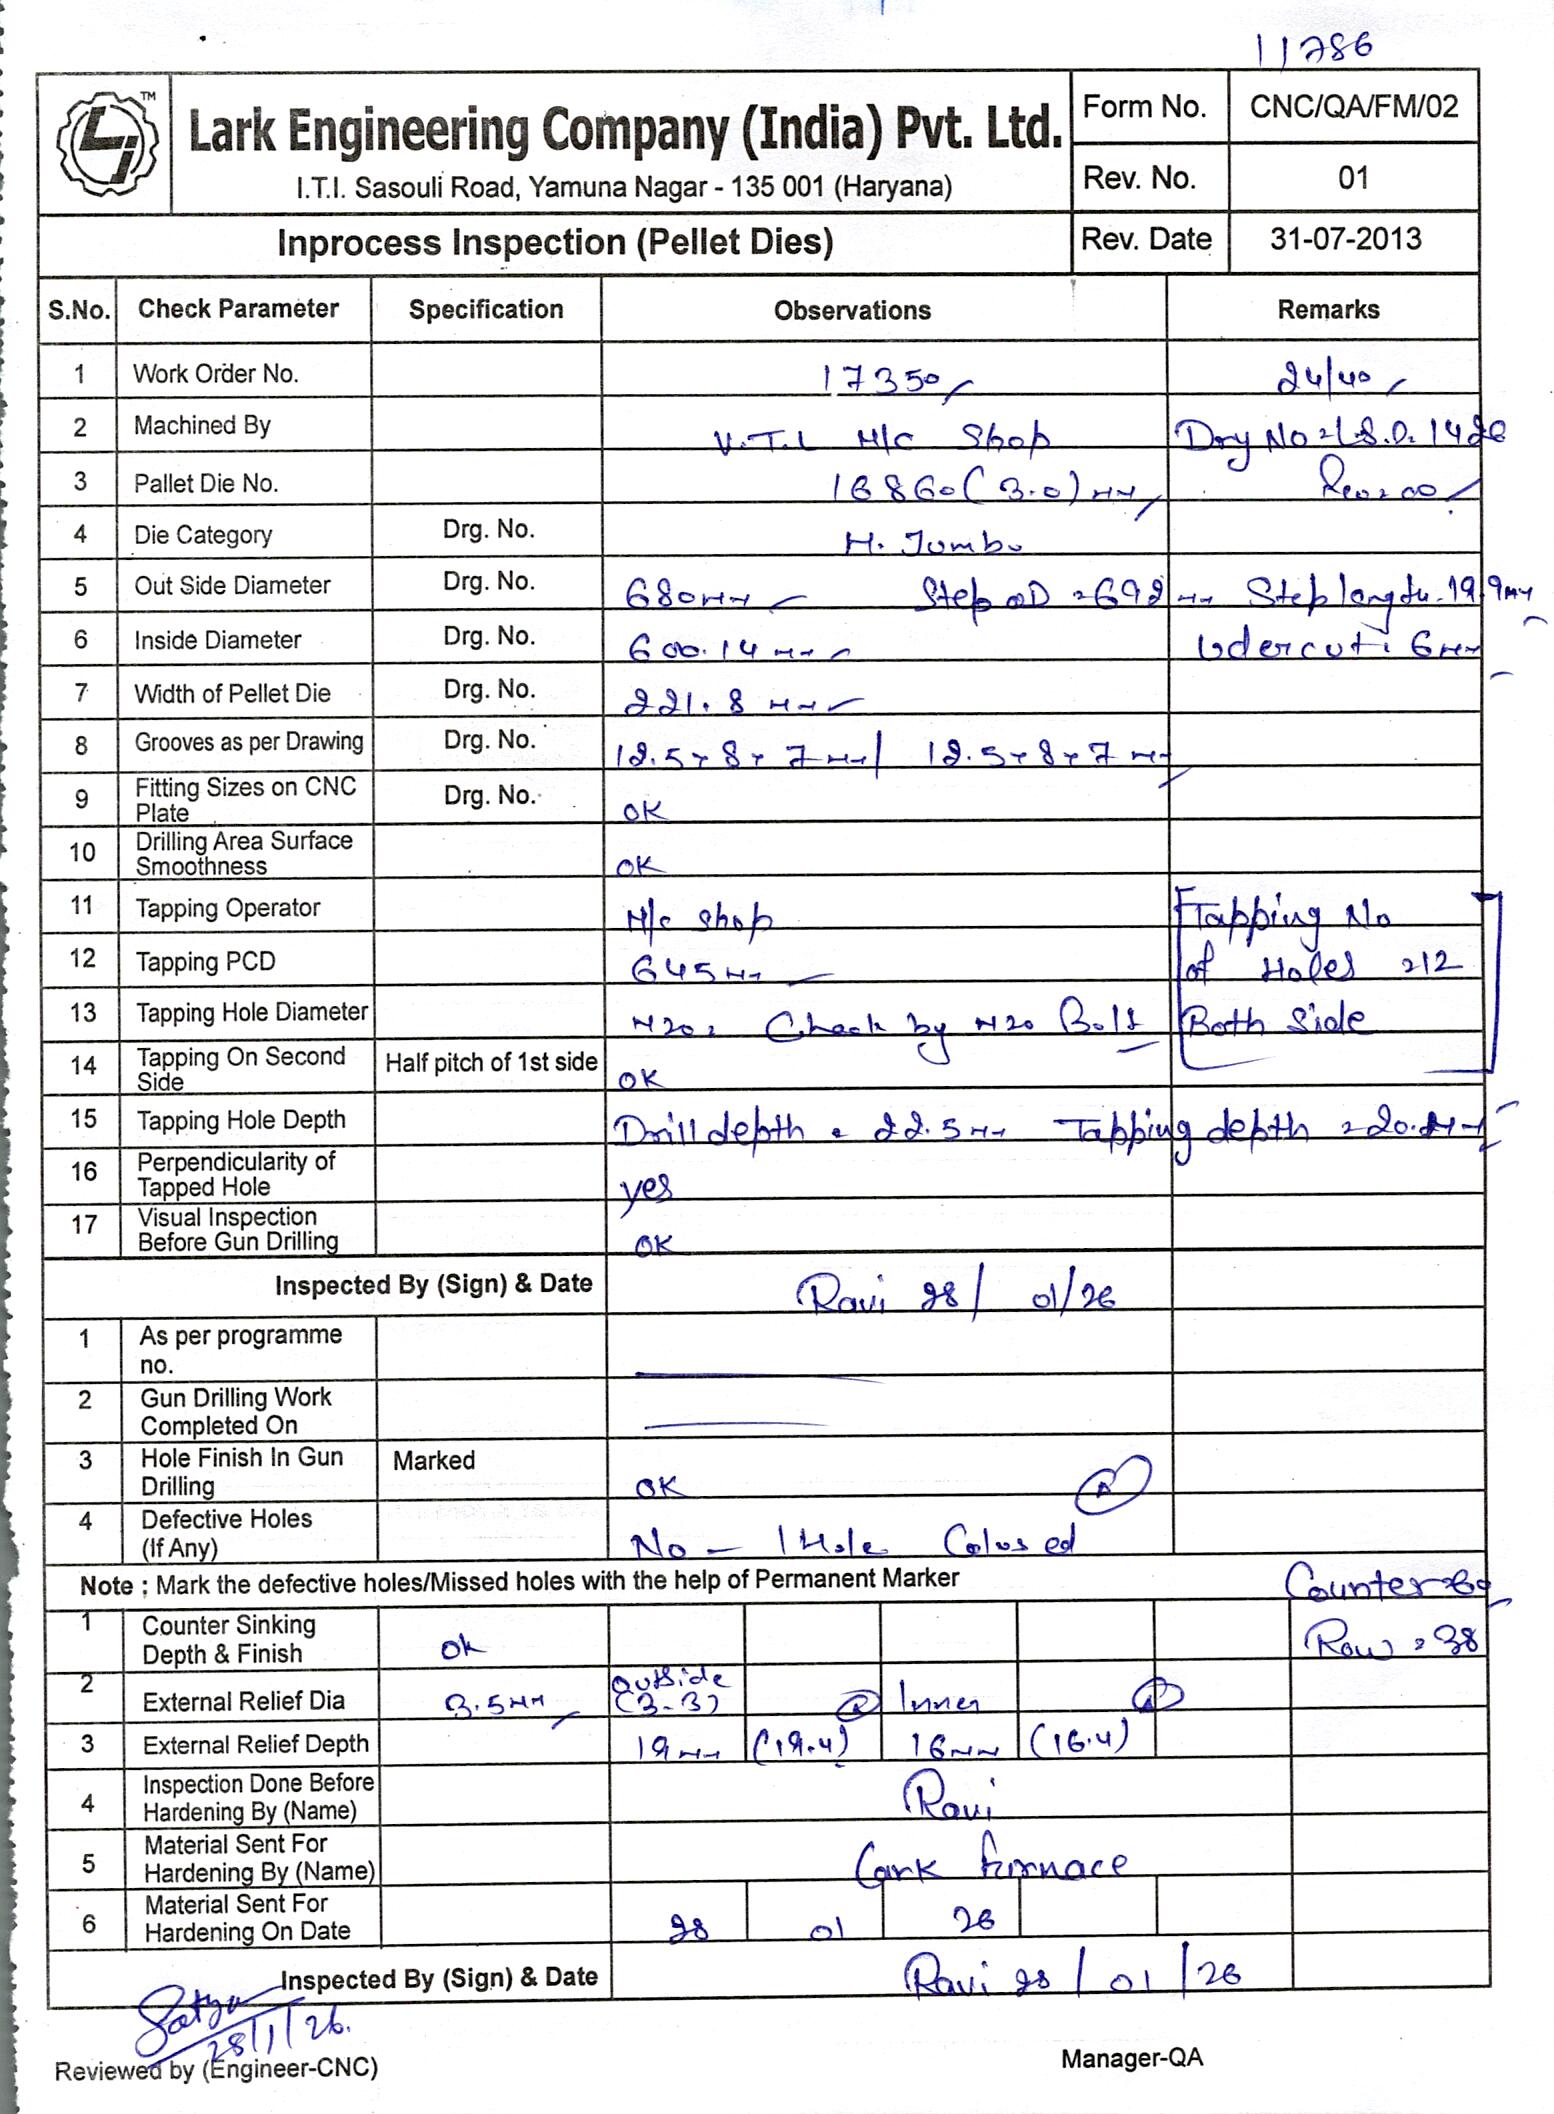 11786
TM
Lark Engineering Company (India) Pvt. Ltd.
I.T.I. Sasouli Road, Yamuna Nagar - 135 001 (Haryana)
Form No. CNC/QA/FM/02
Rev. No. 01
Inprocess Inspection (Pellet Dies) Rev. Date 31-07-2013
S.No. Check Parameter Specification Observations Remarks
1 Work Order No. 17350 24/40
2 Machined By V.T.L M/c Shop Drg No = L.S.D. 1426
3 Pallet Die No. 16860 (3.0) mm Rev = 00
4 Die Category Drg. No. H. Jumbo
5 Out Side Diameter Drg. No. 680mm Step OD = 692mm Step length. 19.9mm
6 Inside Diameter Drg. No. 600.14mm Udercut: 6mm
7 Width of Pellet Die Drg. No. 221.8mm
8 Grooves as per Drawing Drg. No. 12.5x8x7mm/ 12.5x8x7mm
9 Fitting Sizes on CNC Plate Drg. No. OK
10 Drilling Area Surface Smoothness OK
11 Tapping Operator M/c shop Tapping No
12 Tapping PCD 645mm of Holes = 12
13 Tapping Hole Diameter M20 = Check by M20 Bolt Both Side
14 Tapping On Second Side Half pitch of 1st side OK
15 Tapping Hole Depth Drill depth = 22.5mm Tapping depth = 20.
16 Perpendicularity of Tapped Hole yes
17 Visual Inspection Before Gun Drilling OK
Inspected By (Sign) & Date Ravi 28/01/26
1 As per programme no.
2 Gun Drilling Work Completed On
3 Hole Finish In Gun Drilling Marked OK
4 Defective Holes (If Any) No - 1 Hole Colused
Note : Mark the defective holes/Missed holes with the help of Permanent Marker Counter = 60
1 Counter Sinking Depth & Finish ok Row = 38
2 External Relief Dia 3.5mm outside (3-3) Inner
3 External Relief Depth 19mm (19.4) 16mm (16.4)
4 Inspection Done Before Hardening By (Name) Ravi
5 Material Sent For Hardening By (Name) Lark furnace
6 Material Sent For Hardening On Date 28 01 26
Inspected By (Sign) & Date Ravi 28/01/26
Satya
28/1/26.
Reviewed by (Engineer-CNC) Manager-QA